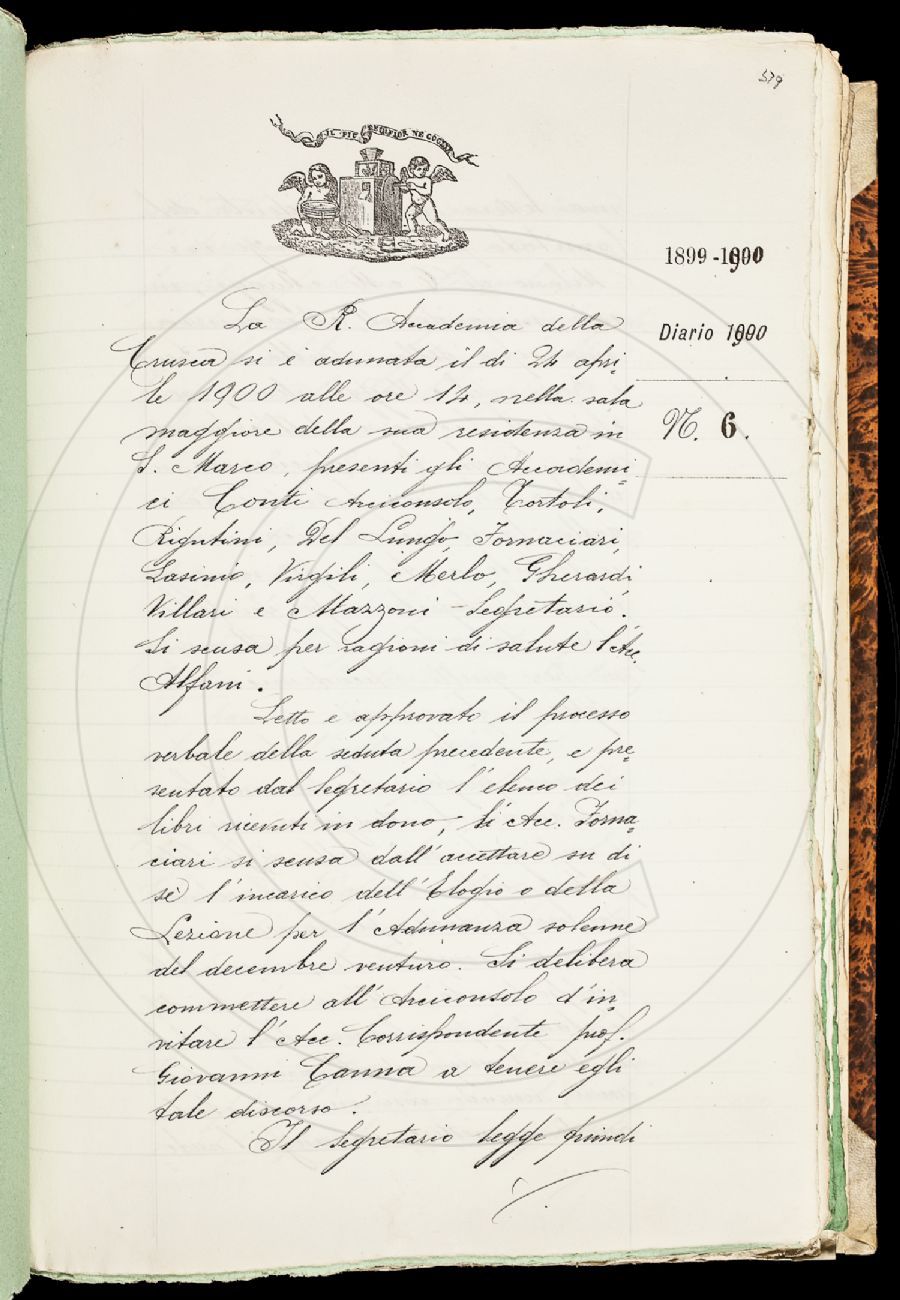 579
IL PIÙ BEL FIOR NE COGLIE
1899-1900
Diario 1900
N. 6.
La R. Accademia della
Crusca si è adunata il dì 24 apri=
le 1900 alle ore 14, nella sala
maggiore della sua residenza in
S. Marco, presenti gli Accademi=
ci Conti Arciconsolo, Tortoli,
Rigutini, Del Lungo, Fornaciari,
Lasinio, Virgili, Merlo, Gherardi,
Villari e Mazzoni - Segretario.
Si scusa per ragioni di salute l'Acc.
Alfani.
Letto e approvato il processo
verbale della seduta precedente, e pre=
sentato dal Segretario l'elenco dei
libri ricevuti in dono, l'Acc. Forna=
ciari si scusa dall'accettare su di
sè l'incarico dell'Elogio o della
Lezione per l'Adunanza solenne
del decembre venturo. Si delibera
commettere all'Arciconsolo d'in=
vitare l'Acc. Corrispondente prof.
Giovanni Canna a tenere egli
tale discorso.
Il Segretario legge quindi